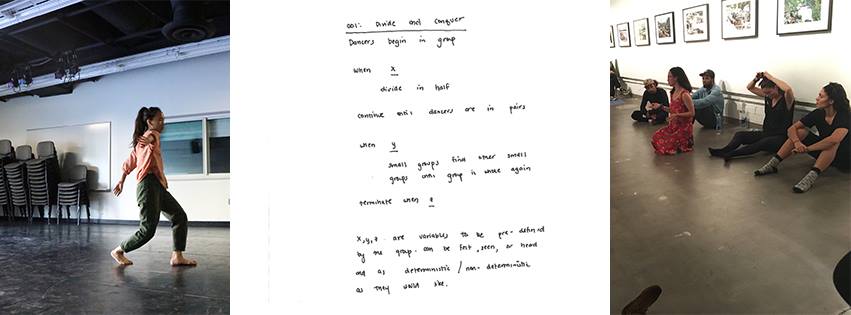 001: Divide and Conquer
Dancers begin in group
when x
divide in half
continue until dancers are in pairs
when y
small groups find other small
groups until group is whole again
terminate when z
x, y, z are variables to be pre-defined
by the group. can be felt, seen, or heard
and as deterministic / non-deterministic
as they would like.